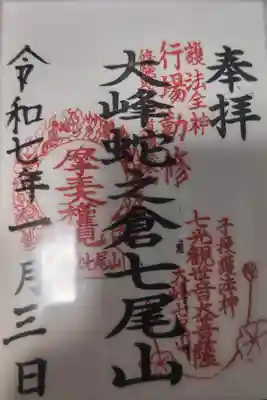 奉拝
護法全神
行場勤修
大峰蛇之倉七尾山
子授護法神
七光観世音大菩薩
七尾山
令和七年一月三日